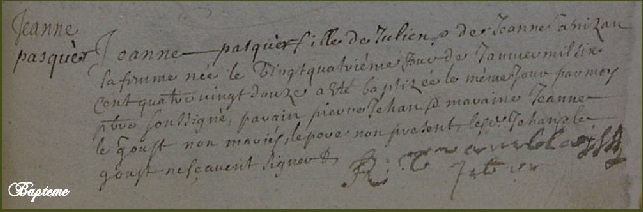 Jeanne
pasquer
Joanne pasquer fille de Julien & de Jeanne
sa femme née le Vingtquatrième Jour de Janvier mil six
cent quatre vingt douze a été baptizée le même jour par moy
ptre soussigné, parain pierre Jehan & maraine Jeanne
le goust non mariés, le pere non present, lesd. Jehan & le
goust ne scavent signer
Bapteme